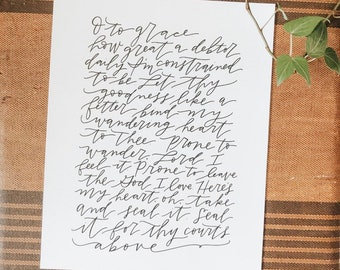 O to grace
how great a debtor
daily I'm constrained
to be Let thy
goodness like a
fetter bind my
wandering heart
to thee prone to
wander Lord I
feel it Prone to leave
the God I love Here's
my heart oh take
and seal it Seal
it for thy courts
above